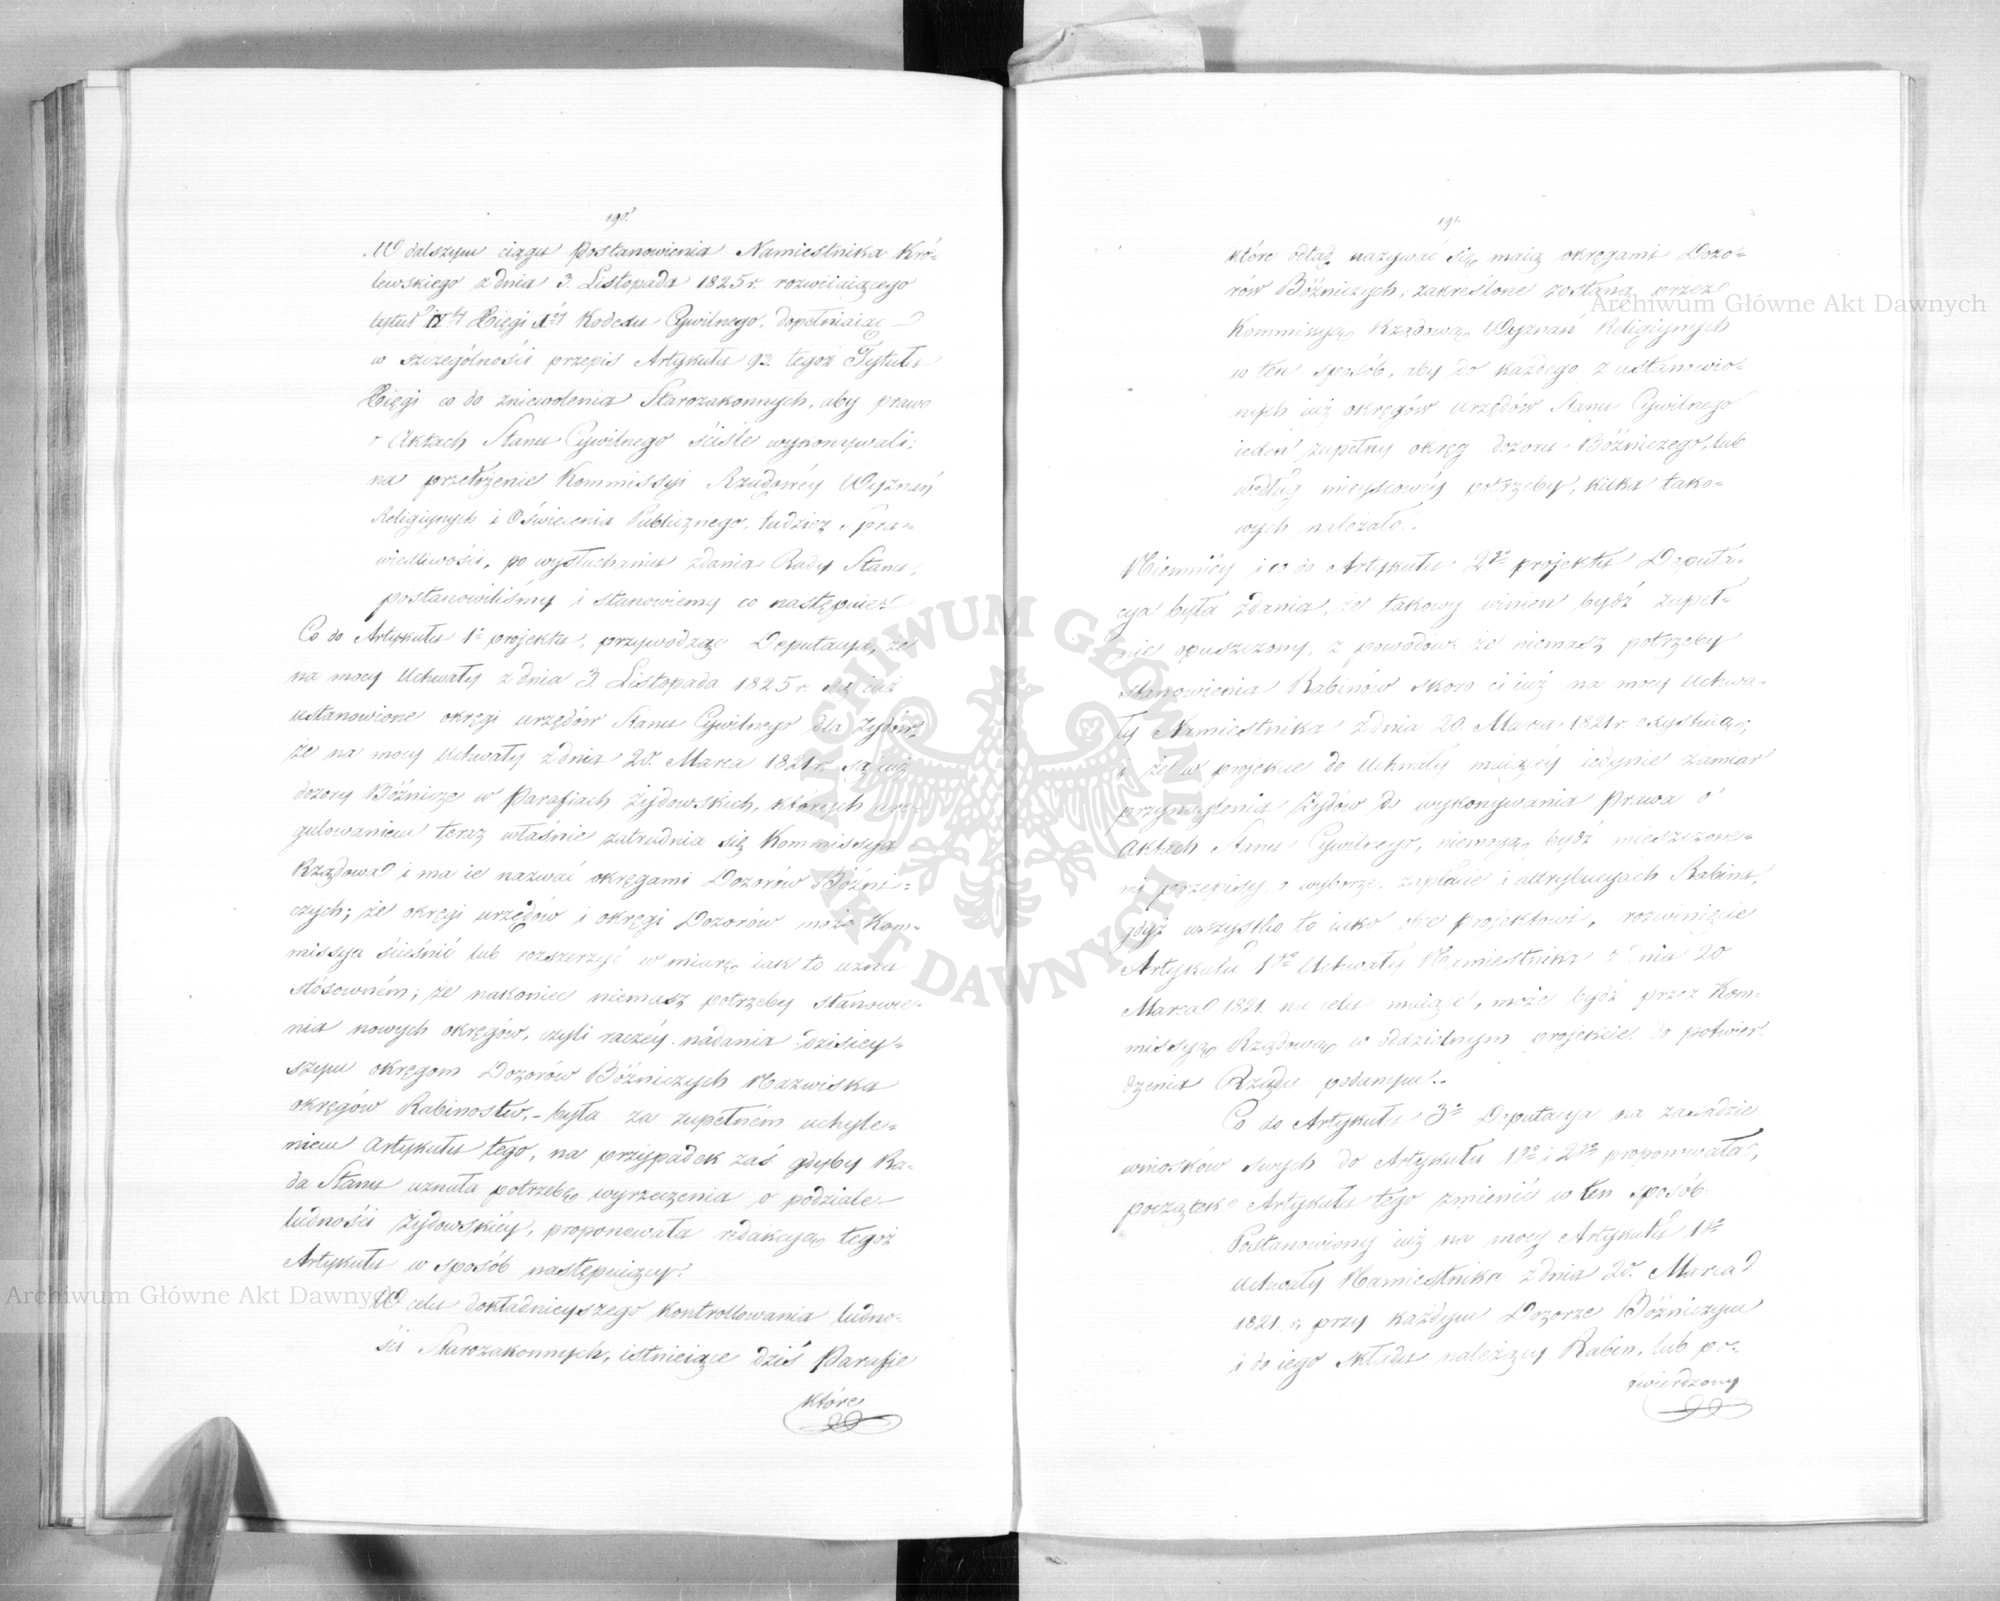 190.
W dalszym ciągu Postanowienia Namiestnika Kró-
lewskiego z dnia 3. Listopada 1825 r. rozwiiaiącego
tytuł IV Xięgi I Kodexu Cywilnego, dopełniaiąc
w szczególności przepis Artykułu 93. tegoż Tytułu
Xięgi co do zniewolenia Starozakonnych, aby prawo
o Aktach Stanu Cywilnego ściśle wykonywali;
na przełożenie Kommissyi Rządowéy Wyznań
Religiynych i Oświecenia Publicznego, tudzież Spra-
wiedliwości, po wysłuchaniu zdania Rady Stanu,
postanowiliśmy i stanowiemy co następuie:
Co do Artykułu 1º projektu, przywodząc Deputacya, że
na mocy Uchwały z dnia 3 Listopada 1825 r. są iuż
ustanowione okręgi urzędów Stanu Cywilnego dla Żydów,
że na mocy Uchwały z dnia 20. Marca 1821 r. są iuż
dozory Bóżnicze w Parafiach żydowskich, których ure-
gulowaniem teraz właśnie zatrudnia się Kommissya
Rządowa i ma ie nazwać okręgami Dozorów Bóżni-
czych; że okręgi urzędów i okręgi Dozorów może Kom-
missya ścieśnić lub rozszerzyć w miarę iak to uzna
stósowném; że nakoniec niemasz potrzeby stanowie-
nia nowych okręgów, czyli raczéy nadania dzisiey-
szym okręgom Dozorów Bóżniczych Nazwiska
okręgów Rabinostw, - była za zupełném uchyle-
niem Artykułu tego, na przypadek zaś gdyby Ra-
da Stanu uznała potrzebę wyrzeczenia o podziale
ludności Żydowskiéy, proponowała redakcyą tegoż
Artykułu w sposób następuiący:
W celu dokładnieyszego kontrollowania ludno-
ści Starozakonnych, istnieiące dziś Parafie
które
191.
które odtąd nazywać się maią okręgami Dozo-
rów Bóżniczych, zakreślone zostaną przez
Kommissyą Rządową Wyznań Religiynych
w ten sposób, aby do każdego z ustanowio-
nych iuż okręgów urzędów Stanu Cywilnego
ieden zupełny okręg dozoru Bóżniczego, lub
według mieyscowéy potrzeby, kilka tako-
wych należało.
Niemniéy i co do Artykułu 2go projektu Deputa-
cya była zdania, że takowy winien bydź zupeł-
nie opuszczony, z powodów że niemasz potrzeby
stanowienia Rabinów skoro ci iuż na mocy Uchwa-
ły Namiestnika z dnia 20. Marca 1821 r. exystuią;
i że w projekcie do Uchwały maiącéy iedynie zamiar
przynaglenia Żydów do wykonywania Prawa o
Aktach Stanu Cywilnego, niemogą bydź mieszczone-
mi przepisy o wyborze, zapłacie i attrybucyach Rabina,
gdyż wszystko to iako obce projektowi, rozwinięcie
Artykułu 1go Uchwały Namiestnika z dnia 20
Marca 1821. na celu maiące, może bydź przez Kom-
missyą Rządową w oddzielnym projekcie do potwier-
dzenia Rządu podanym.
Co do Artykułu 3º Deputacya na zasadzie
wniosków swych do Artykułu 1go i 2go proponowała,
początek Artykułu tego zmienić w ten sposób:
Postanowiony iuż na mocy Artykułu 1go
Uchwały Namiestnika z dnia 20. Marca
1821 r. przy każdym Dozorze Bóżniczym
i do iego składu należący Rabin, lub po-
twierdzony
Archiwum Główne Akt Dawnych
Archiwum Główne Akt Dawnych
ARCHIWUM GŁÓWNE AKT DAWNYCH